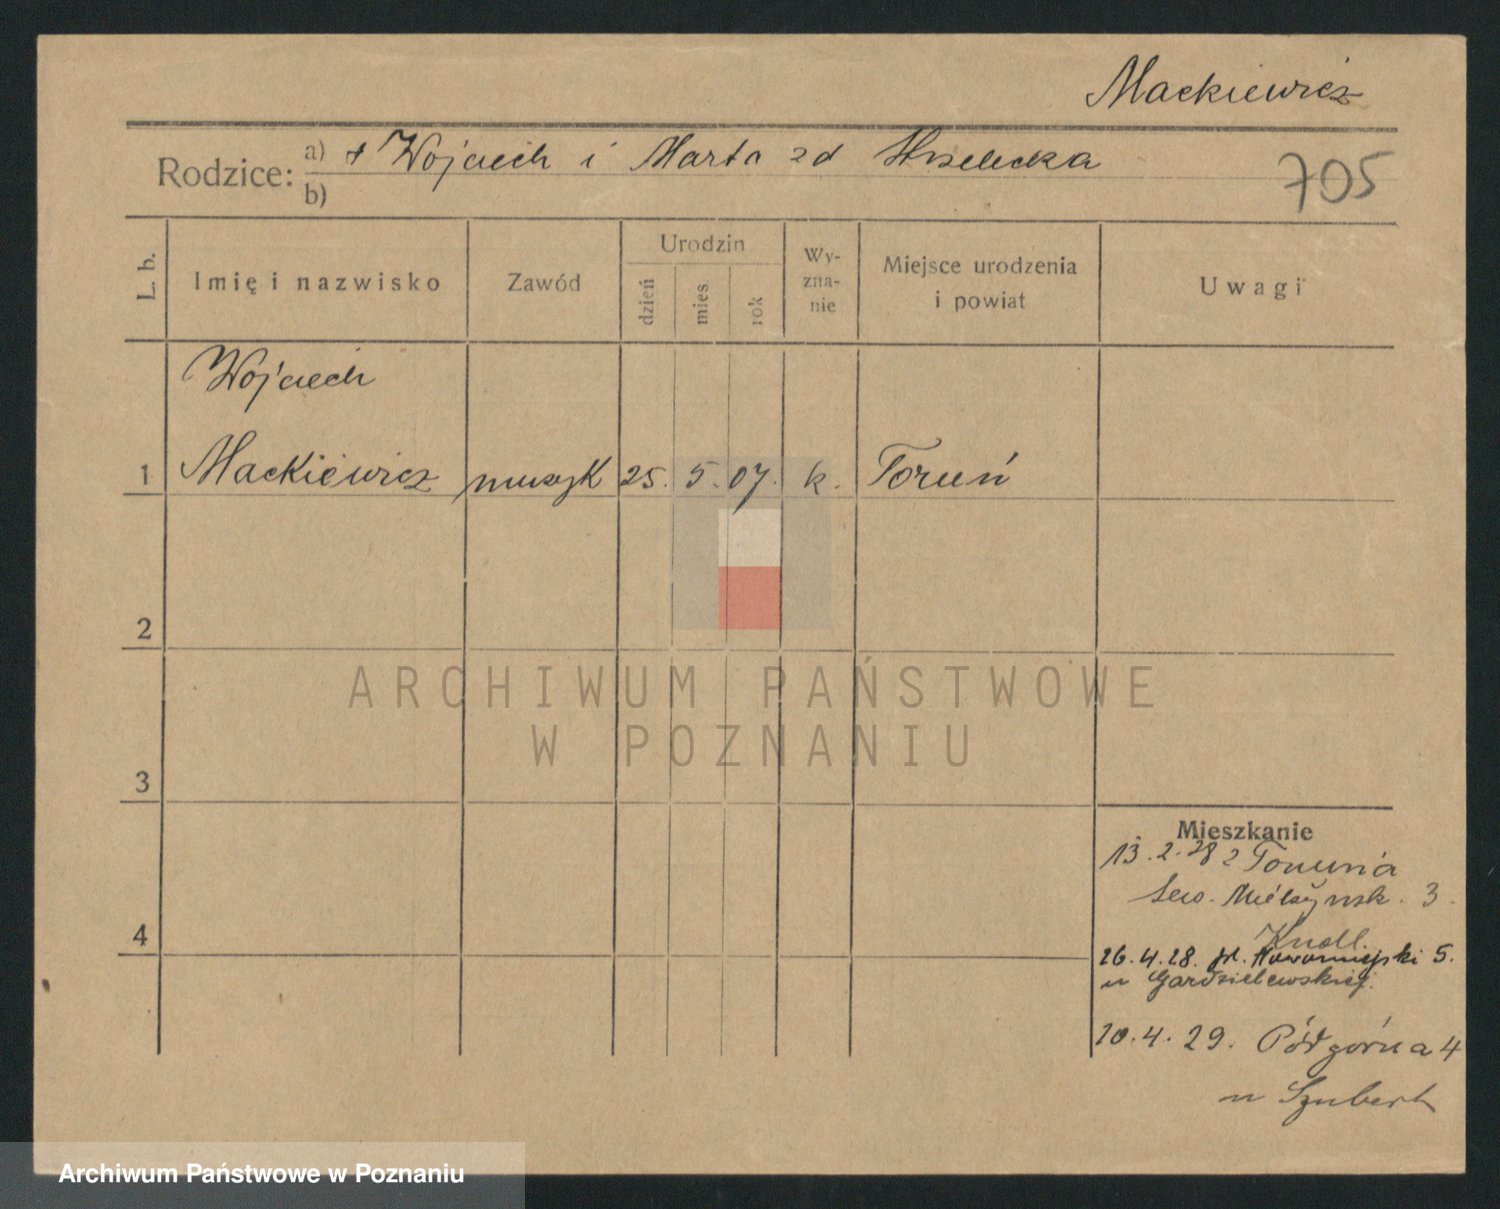 Mackiewicz
Rodzice: a) + Wojciech i Marta zd
b)
705
L. b.
Imię i nazwisko
Zawód
Urodzin
dzień
mies
rok
Wy-
zna-
nie
Miejsce urodzenia
i powiat
Uwagi
Wojciech
1 Mackiewicz muzyk 25. 5. 07. k. Toruń
2
3
4
ARCHIWUM PAŃSTWOWE
W POZNANIU
Mieszkanie
13.2.28 z Torunia
Sew. Mielżyńsk. 3.
Knoll.
26.4.28. pl. Nowomiejski 5.
u Gardzielewskiej.
10.4.29. Podgórna 4
u Szubert
Archiwum Państwowe w Poznaniu